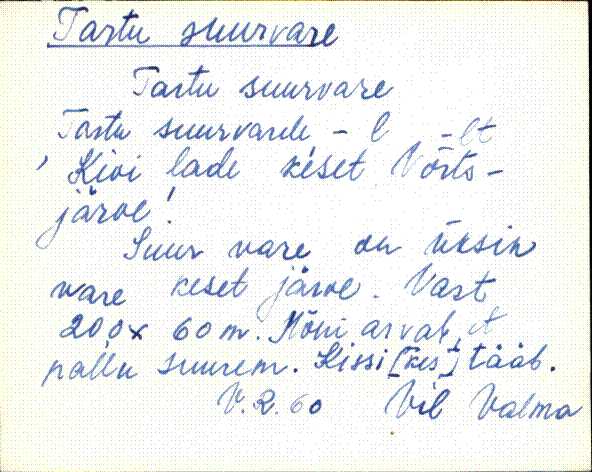 Tartu suurvare
Tartu suurvare
Tartu suurvarele - l -lt
'Kivi lade keset Võrts-
järve'
Suur vare on üksik
vare keset järve. Vast
200x 60 m. Mõni arvab, et
pallu suurem. Kissi [kes] tääb.
V.R. 60 Vil Valma